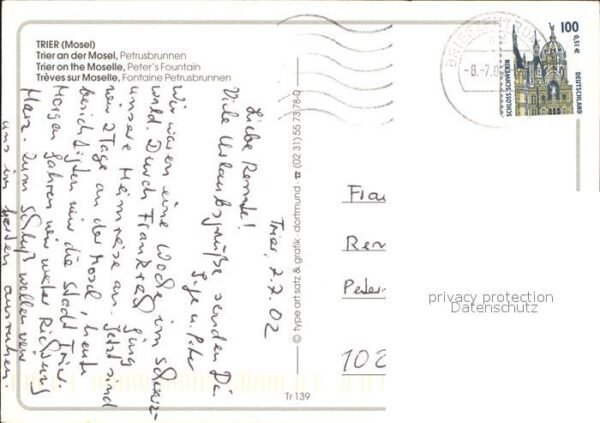 TRIER (Mosel)
Trier an der Mosel, Petrusbrunnen
Trier on the Moselle, Peter's Fountain
Trèves sur Moselle, Fontaine Petrusbrunnen
Trier, 7.7.02
Liebe Renate!
Viele Urlaubsgrüße senden Dir
Inge u. Peter
Wir waren eine Woche im Schwarz-
wald. Durch Frankreich ging
unsere Heimreise an. Jetzt sind
wir 2 Tage an der Mosel, heute
besichtigten wir die Stadt Trier.
Morgen fahren wir weiter Richtung
Harz. Zum Schluß wollen wir
uns im ausruhen.
© type art satz & grafik · dortmund · ☎ (02 31) 55 73 78-0
Tr 139
BRIEFZENTRUM
-8.-7.0
100
0,51€
SCHLOSS SCHWERIN
DEUTSCHLAND
Frau
Ren
Peter-
102
privacy protection
Datenschutz